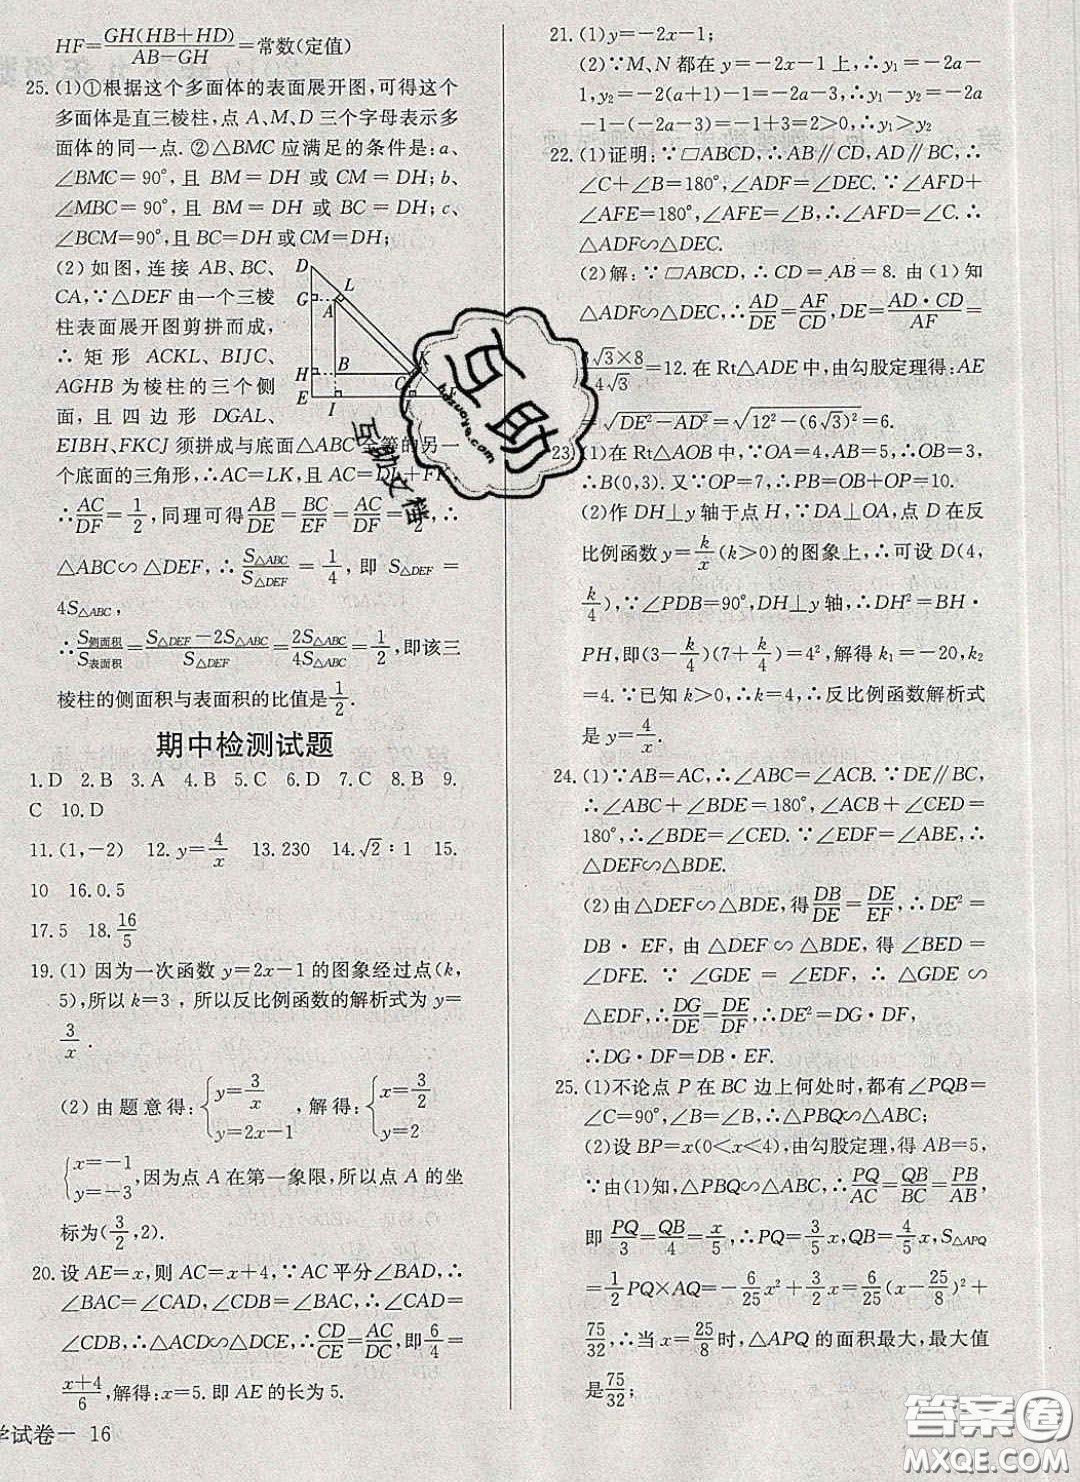 HF=GH(HB+HD)/(AB-GH)=常数(定值)
25.(1)①根据这个多面体的表面展开图,可得这个
多面体是直三棱柱,点 A、M、D 三个字母表示多
面体的同一点.②△BMC 应满足的条件是:a、
∠BMC=90°,且 BM=DH 或 CM=DH;b、
∠MBC=90°,且 BM=DH 或 BC=DH;c、
∠BCM=90°,且 BC=DH 或CM=DH;
(2) 如图,连接 AB、BC、
CA,∵△DEF 由一个三棱
柱表面展开图剪拼而成,
∴矩形 ACKL、BIJC、
AGHB 为棱柱的三个侧
面,且四边形 DGAL、
EIBH、FKCJ 须拼成与底面△ABC 全等的另一
个底面的三角形,∴AC=LK,且 AC=DL+FK,
∴AC/DF=1/2,同理可得AB/DE=BC/EF=AC/DF=1/2,∴
△ABC∽△DEF,∴S△ABC/S△DEF=1/4,即 S△DEF=
4S△ABC,
∴S侧面积/S表面积=(S△DEF-2S△ABC)/S△DEF=2S△ABC/4S△ABC=1/2,即该三
棱柱的侧面积与表面积的比值是1/2.
D G H E L A B I K C J F
期中检测试题
1.D 2.B 3.A 4.B 5.C 6.D 7.C 8.B 9.
C 10.D
11.(1,-2) 12.y=4/x 13.230 14.√2∶1 15.
10 16.0.5
17.5 18.16/5
19.(1) 因为一次函数 y=2x-1 的图象经过点(k,
5),所以 k=3,所以反比例函数的解析式为 y=
3/x.
(2) 由题意得:{y=3/x y=2x-1,解得:{x=3/2 y=2
{x=-1 y=-3,因为点 A 在第一象限,所以点 A 的坐
标为(3/2,2).
20.设 AE=x,则 AC=x+4,∵AC 平分∠BAD,∴
∠BAC=∠CAD,∠CDB=∠BAC,∴∠CAD=
∠CDB,∴△ACD∽△DCE,∴CD/CE=AC/DC,即6/4=
(x+4)/6,解得:x=5.即 AE 的长为 5.
学试卷一 16
21.(1)y=-2x-1;
(2)∵M、N 都在 y=-2x-1 上,∴y₁=-2a-
1,y₂=-2(a+1)-1=-2a-3,∴y₁-y₂=-2a
-1-(-2a-3)=-1+3=2>0,∴y₁>y₂
22.(1)证明:∵▱ABCD,∴AB∥CD,AD∥BC,∴
∠C+∠B=180°,∠ADF=∠DEC.∵∠AFD+
∠AFE=180°,∠AFE=∠B,∴∠AFD=∠C.∴
△ADF∽△DEC.
(2)解:∵▱ABCD,∴CD=AB=8.由(1)知
△ADF∽△DEC,∴AD/DE=AF/CD,∴DE=AD·CD/AF=
6√3×8/4√3=12.在 Rt△ADE 中,由勾股定理得:AE
=√(DE²-AD²)=√(12²-(6√3)²)=6.
23.(1)在 Rt△AOB 中,∵OA=4,AB=5,∴OB=
3,∴B(0,3).又∵OP=7,∴PB=OB+OP=10.
(2)作 DH⊥y 轴于点 H,∵DA⊥OA,点 D 在反
比例函数 y=k/x(k>0)的图象上,∴可设 D(4,
k/4),∵∠PDB=90°,DH⊥y 轴,∴DH²=BH·
PH,即(3-k/4)(7+k/4)=4²,解得 k₁=-20,k₂
=4.∵已知 k>0,∴k=4,∴反比例函数解析式
是 y=4/x.
24.(1)∵AB=AC,∴∠ABC=∠ACB.∵DE∥BC,
∴∠ABC+∠BDE=180°,∠ACB+∠CED=
180°,∴∠BDE=∠CED.∵∠EDF=∠ABE,∴
△DEF∽△BDE.
(2)由△DEF∽△BDE,得DB/DE=DE/EF,∴DE²=
DB·EF,由△DEF∽△BDE,得∠BED=
∠DFE.∵∠GDE=∠EDF,∴△GDE∽
△EDF,∴DG/DE=DE/DF,∴DE²=DG·DF,
∴DG·DF=DB·EF.
25.(1)不论点 P 在 BC 边上何处时,都有∠PQB=
∠C=90°,∠B=∠B,∴△PBQ∽△ABC;
(2)设 BP=x(0<x<4),由勾股定理,得 AB=5,
∵由(1)知,△PBQ∽△ABC,∴PQ/AC=QB/BC=PB/AB,
即PQ/3=QB/4=x/5,∴PQ=3/5x,QB=4/5x,S△APQ
=1/2PQ×AQ=-6/25x²+3/2x=-6/25(x-25/8)²+
75/32,∴当 x=25/8时,△APQ 的面积最大,最大值
是75/32;
互助
huzuoye.com
互助文档
答案圈
MXQE.COM